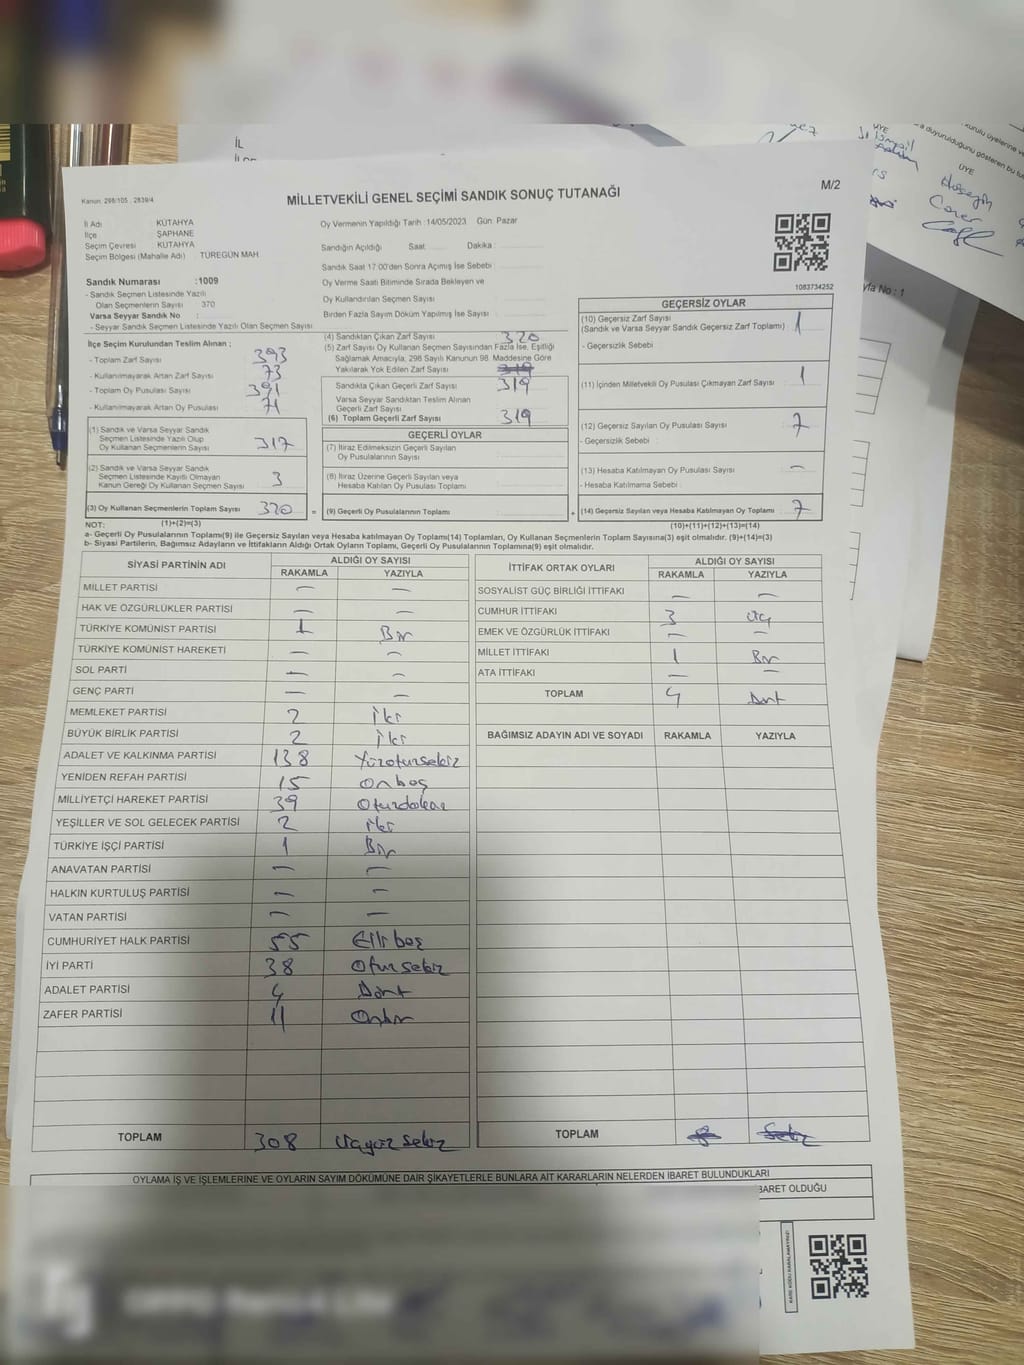 İL
M/2
Kanun. 298/105 , 2839/4
MİLLETVEKİLİ GENEL SEÇİMİ SANDIK SONUÇ TUTANAĞI
İl Adı KÜTAHYA
İlçe ŞAPHANE
Seçim Çevresi KÜTAHYA
Seçim Bölgesi (Mahalle Adı) TÜREGÜN MAH.
Oy Vermenin Yapıldığı Tarih : 14/05/2023 Gün: Pazar
Sandığın Açıldığı Saat: Dakika :
Sandık Saat 17.00'den Sonra Açımış İse Sebebi :
Oy Verme Saati Bitiminde Sırada Bekleyen ve
Oy Kullandırılan Seçmen Sayısı :
Birden Fazla Sayım Döküm Yapılmış İse Sayısı :
1083734252
Sandık Numarası :1009
- Sandık Seçmen Listesinde Yazılı
Olan Seçmenlerin Sayısı 370
Varsa Seyyar Sandık No :
- Seyyar Sandık Seçmen Listesinde Yazılı Olan Seçmen Sayısı
İlçe Seçim Kurulundan Teslim Alınan ;
- Toplam Zarf Sayısı : 393
- Kullanılmayarak Artan Zarf Sayısı : 73
- Toplam Oy Pusulası Sayısı : 391
- Kullanılmayarak Artan Oy Pusulası : 71
(1) Sandık ve Varsa Seyyar Sandık
Seçmen Listesinde Yazılı Olup
Oy Kullanan Seçmenlerin Sayısı : 317
(2) Sandık ve Varsa Seyyar Sandık
Seçmen Listesinde Kayıtlı Olmayan
Kanun Gereği Oy Kullanan Seçmen Sayısı : 3
(3) Oy Kullanan Seçmenlerin Toplam Sayısı : 320
(4) Sandıktan Çıkan Zarf Sayısı : 320
(5) Zarf Sayısı Oy Kullanan Seçmen Sayısından Fazla İse, Eşitliği
Sağlamak Amacıyla, 298 Sayılı Kanunun 98. Maddesine Göre
Yakılarak Yok Edilen Zarf Sayısı : 319
Sandıkta Çıkan Geçerli Zarf Sayısı : 319
Varsa Seyyar Sandıktan Teslim Alınan
Geçerli Zarf Sayısı :
(6) Toplam Geçerli Zarf Sayısı : 319
GEÇERLİ OYLAR
(7) İtiraz Edilmeksizin Geçerli Sayılan
Oy Pusulalarının Sayısı :
(8) İtiraz Üzerine Geçerli Sayılan veya
Hesaba Katılan Oy Pusulası Toplamı :
= (9) Geçerli Oy Pusulalarının Toplamı :
GEÇERSİZ OYLAR
(10) Geçersiz Zarf Sayısı
(Sandık ve Varsa Seyyar Sandık Geçersiz Zarf Toplamı) : 1
- Geçersizlik Sebebi :
(11) İçinden Milletvekili Oy Pusulası Çıkmayan Zarf Sayısı : 1
(12) Geçersiz Sayılan Oy Pusulası Sayısı : 7
- Geçersizlik Sebebi :
(13) Hesaba Katılmayan Oy Pusulası Sayısı : -
- Hesaba Katılmama Sebebi :
+ (14) Geçersiz Sayılan veya Hesaba Katılmayan Oy Toplamı : 7
NOT: (1)+(2)=(3)
(10)+(11)+(12)+(13)=(14)
a- Geçerli Oy Pusulalarının Toplamı(9) ile Geçersiz Sayılan veya Hesaba katılmayan Oy Toplamı(14) Toplamları, Oy Kullanan Seçmenlerin Toplam Sayısına(3) eşit olmalıdır. (9)+(14)=(3)
b- Siyasi Partilerin, Bağımsız Adayların ve İttifakların Aldığı Ortak Oyların Toplamı, Geçerli Oy Pusulalarının Toplamına(9) eşit olmalıdır.
SİYASİ PARTİNİN ADI ALDIĞI OY SAYISI
RAKAMLA YAZIYLA
MİLLET PARTİSİ - -
HAK VE ÖZGÜRLÜKLER PARTİSİ - -
TÜRKİYE KOMÜNİST PARTİSİ 1 Bir
TÜRKİYE KOMÜNİST HAREKETİ - -
SOL PARTİ - -
GENÇ PARTİ - -
MEMLEKET PARTİSİ 2 İki
BÜYÜK BİRLİK PARTİSİ 2 İki
ADALET VE KALKINMA PARTİSİ 138 Yüzotuzsekiz
YENİDEN REFAH PARTİSİ 15 Onbeş
MİLLİYETÇİ HAREKET PARTİSİ 39 Otuzdokuz
YEŞİLLER VE SOL GELECEK PARTİSİ 2 İki
TÜRKİYE İŞÇİ PARTİSİ 1 Bir
ANAVATAN PARTİSİ - -
HALKIN KURTULUŞ PARTİSİ - -
VATAN PARTİSİ - -
CUMHURİYET HALK PARTİSİ 55 Elli beş
İYİ PARTİ 38 Otuz sekiz
ADALET PARTİSİ 4 Dört
ZAFER PARTİSİ 11 Onbir
TOPLAM 308 Üçyüz sekiz
İTTİFAK ORTAK OYLARI ALDIĞI OY SAYISI
RAKAMLA YAZIYLA
SOSYALİST GÜÇ BİRLİĞİ İTTİFAKI - -
CUMHUR İTTİFAKI 3 Üç
EMEK VE ÖZGÜRLÜK İTTİFAKI - -
MİLLET İTTİFAKI 1 Bir
ATA İTTİFAKI - -
TOPLAM 4 Dört
BAĞIMSIZ ADAYIN ADI VE SOYADI RAKAMLA YAZIYLA
TOPLAM 8 Sekiz
OYLAMA İŞ VE İŞLEMLERİNE VE OYLARIN SAYIM DÖKÜMÜNE DAİR ŞİKAYETLERLE BUNLARA AİT KARARLARIN NELERDEN İBARET BULUNDUKLARI
BARET OLDUĞU
KARE KODU KARALAMAYINIZ!
ÜYE
ÜYE
Hüseyin
yfa No : 1